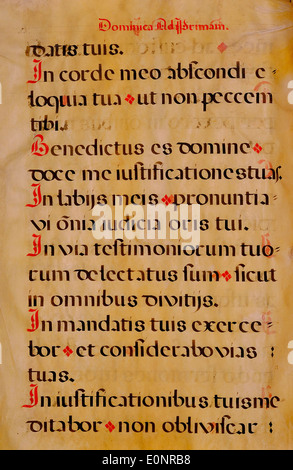 Dominica Ad Primam.
datis tuis.
In corde meo abscondi e=
loquia tua ❖ ut non peccem
tibi.
Benedictus es domine ❖
doce me iustificationes tuas.
In labijs meis ❖ pronuntia=
vi õnia iudicia oris tui.
In via testimoniorum tuo=
rum delectatus sum ❖ sicut
in omnibus divitijs.
In mandatis tuis exerce=
bor ❖ et considerabo vias :
tuas.
In iustificationibus tuis me=
ditabor ❖ non obliviscar :
alamy stock photo
E0NRB8
www.alamy.com